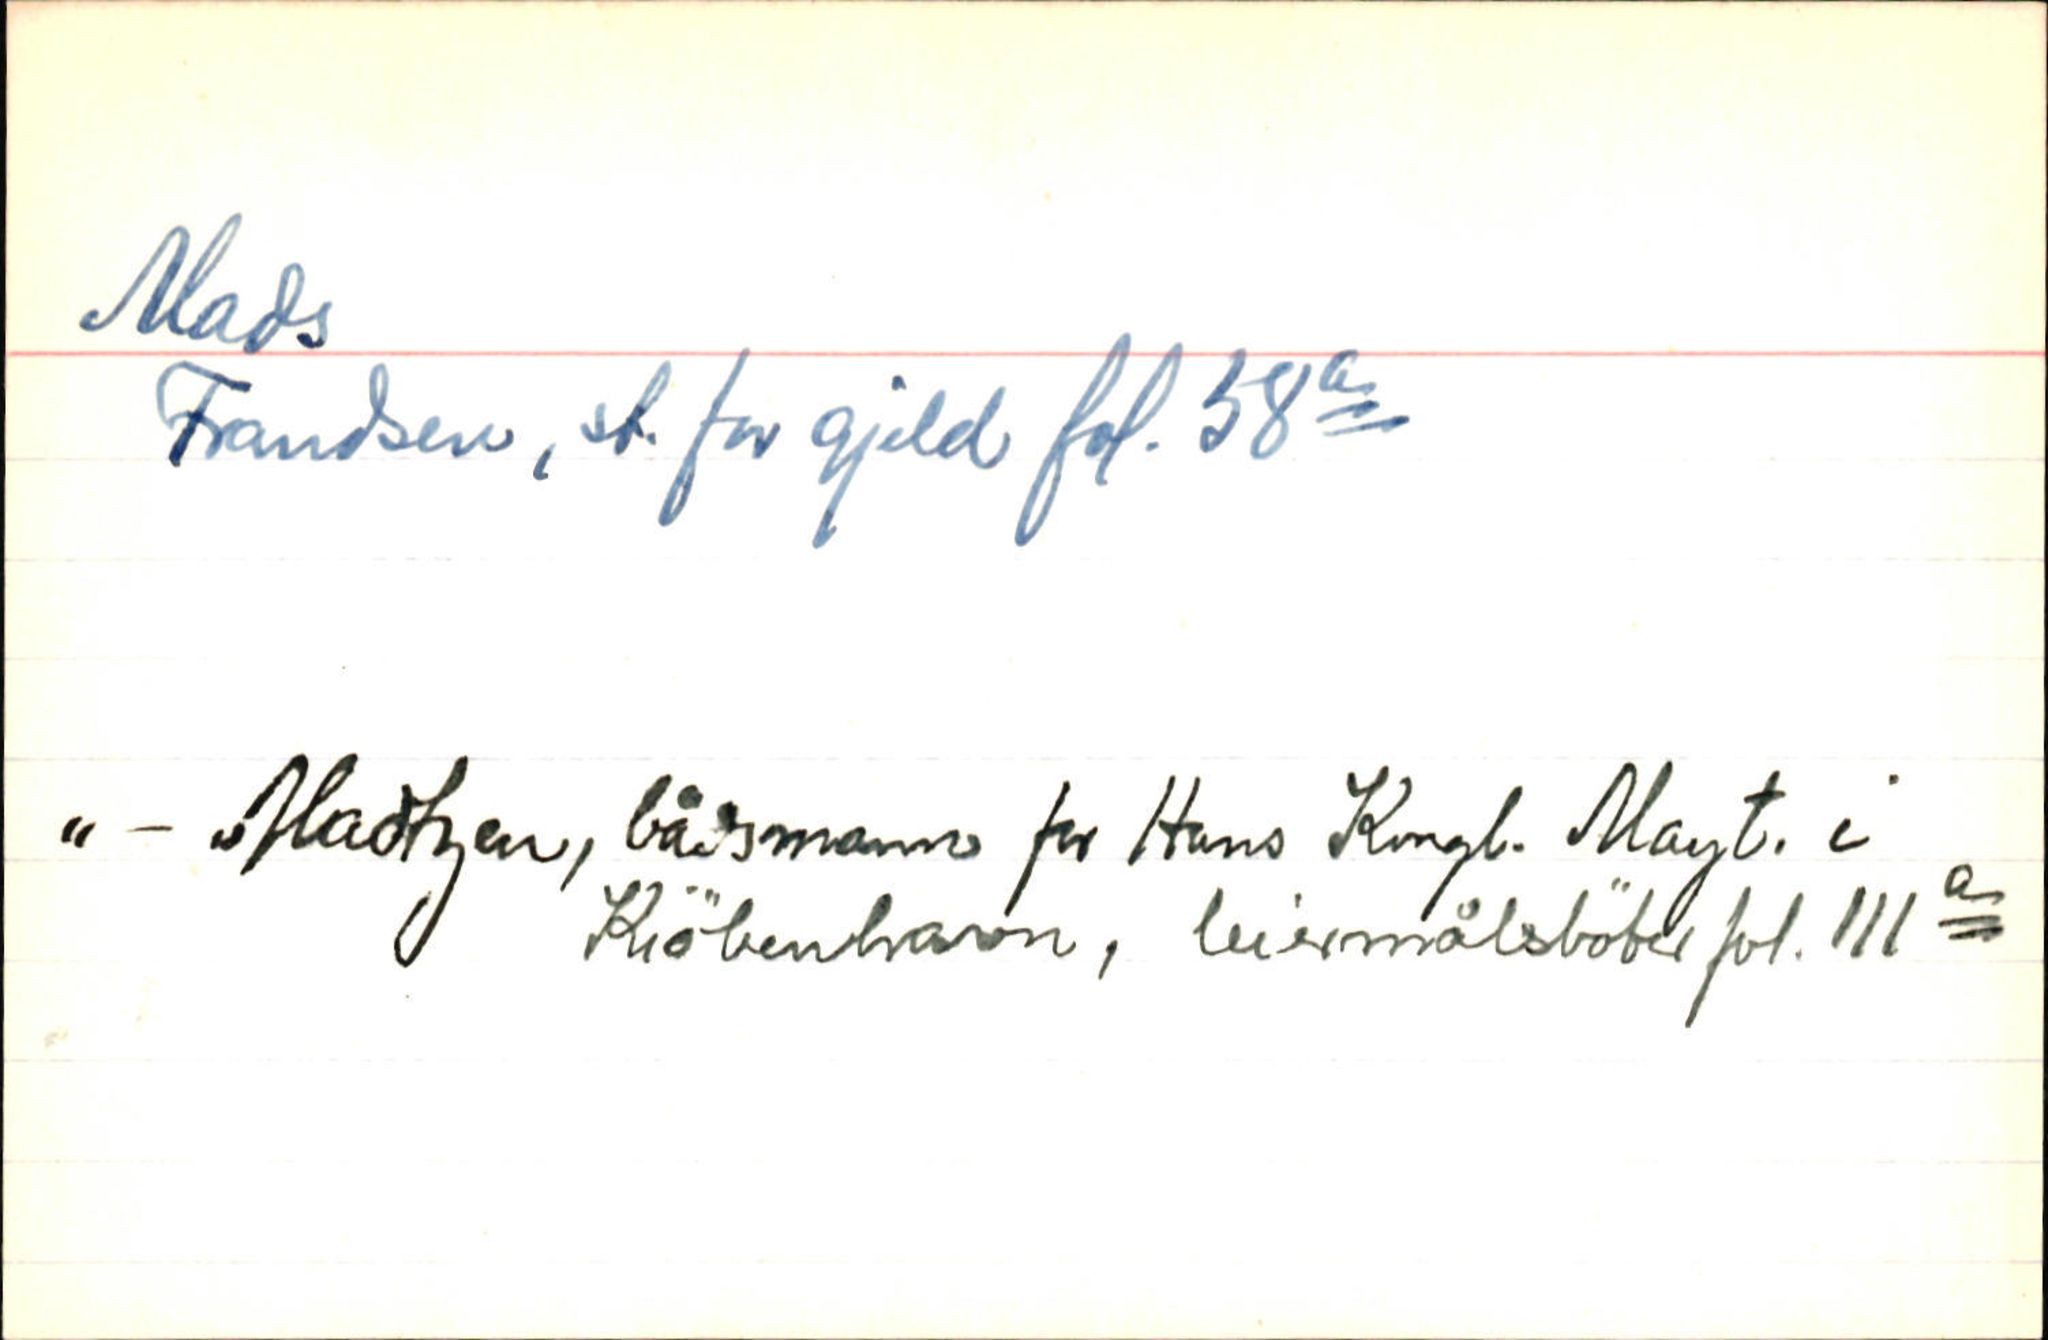 Mads
Frandsen, st. for gjeld fol. 58a
" - Madtzen, båsmann for Hans Kongl. Mayt. i
Kiöbenhavn, leiermålsböter fol. 111a